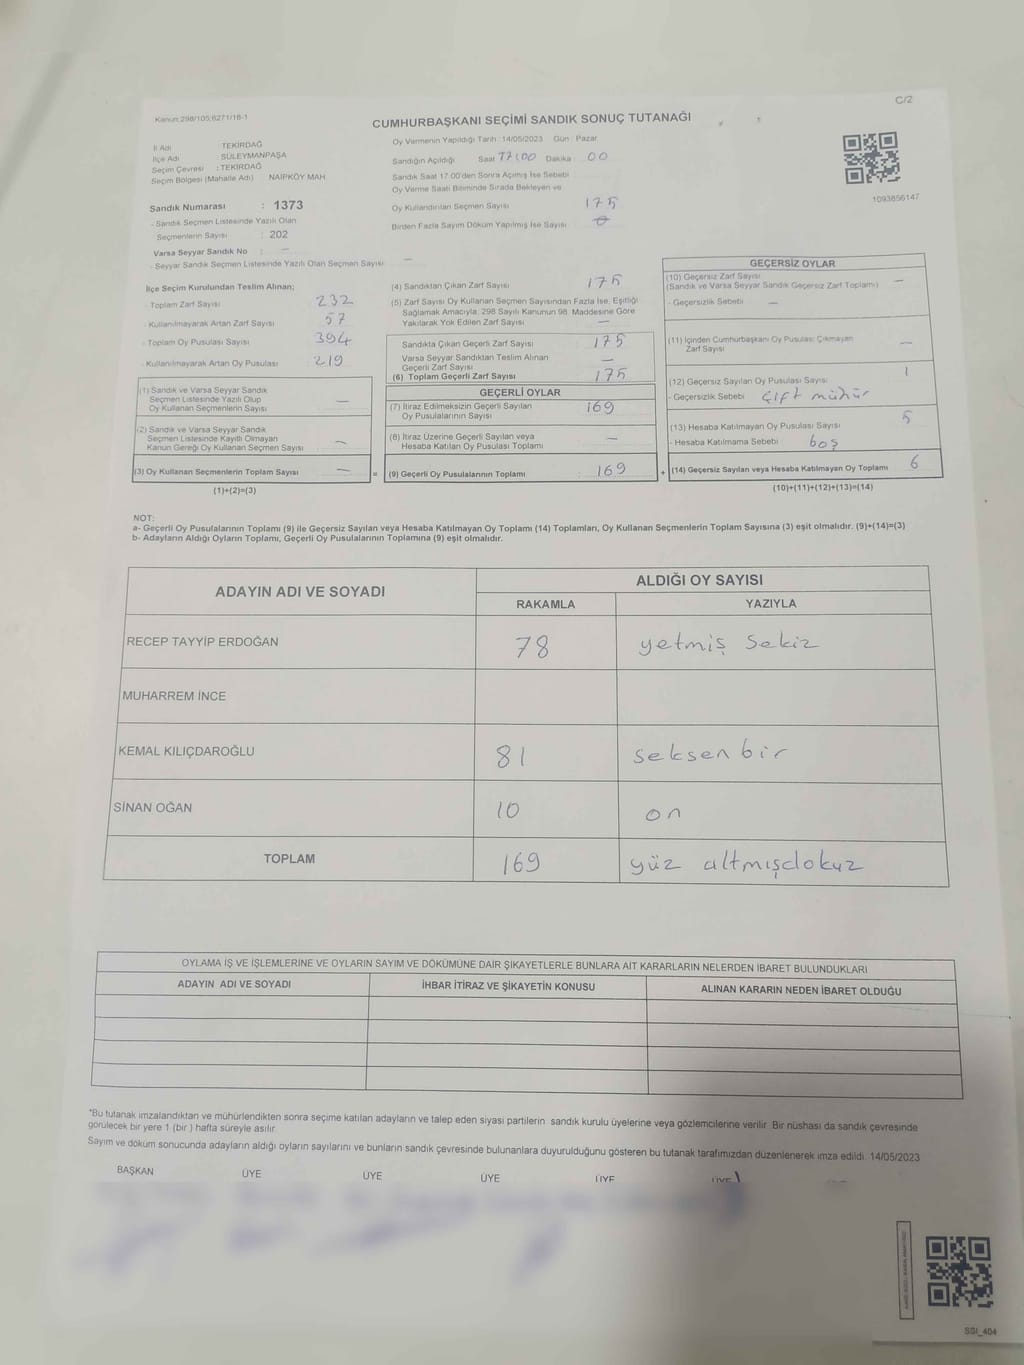 C/2
Kanun:298/105;6271/18-1
CUMHURBAŞKANI SEÇİMİ SANDIK SONUÇ TUTANAĞI
İl Adı TEKİRDAĞ
İlçe Adı SÜLEYMANPAŞA
Seçim Çevresi : TEKİRDAĞ
Seçim Bölgesi (Mahalle Adı) NAİPKÖY MAH
Sandık Numarası : 1373
- Sandık Seçmen Listesinde Yazılı Olan
Seçmenlerin Sayısı : 202
Varsa Seyyar Sandık No : —
- Seyyar Sandık Seçmen Listesinde Yazılı Olan Seçmen Sayısı —
Oy Vermenin Yapıldığı Tarih : 14/05/2023 Gün : Pazar
Sandığın Açıldığı Saat 17:00 Dakika 00
Sandık Saat 17:00'den Sonra Açılmış İse Sebebi
Oy Verme Saati Bitiminde Sırada Bekleyen ve
Oy Kullandırılan Seçmen Sayısı 175
Birden Fazla Sayım Döküm Yapılmış İse Sayısı
1093856147
İlçe Seçim Kurulundan Teslim Alınan;
- Toplam Zarf Sayısı 232
- Kullanılmayarak Artan Zarf Sayısı 57
- Toplam Oy Pusulası Sayısı 394
- Kullanılmayarak Artan Oy Pusulası 219
(1) Sandık ve Varsa Seyyar Sandık
Seçmen Listesinde Yazılı Olup
Oy Kullanan Seçmenlerin Sayısı —
(2) Sandık ve Varsa Seyyar Sandık
Seçmen Listesinde Kayıtlı Olmayan
Kanun Gereği Oy Kullanan Seçmen Sayısı —
(3) Oy Kullanan Seçmenlerin Toplam Sayısı —
(1)+(2)=(3)
(4) Sandıktan Çıkan Zarf Sayısı 175
(5) Zarf Sayısı Oy Kullanan Seçmen Sayısından Fazla İse, Eşitliği
Sağlamak Amacıyla; 298 Sayılı Kanunun 98. Maddesine Göre
Yakılarak Yok Edilen Zarf Sayısı —
Sandıkta Çıkan Geçerli Zarf Sayısı 175
Varsa Seyyar Sandıktan Teslim Alınan
Geçerli Zarf Sayısı —
(6) Toplam Geçerli Zarf Sayısı 175
GEÇERLİ OYLAR
(7) İtiraz Edilmeksizin Geçerli Sayılan
Oy Pusulalarının Sayısı 169
(8) İtiraz Üzerine Geçerli Sayılan veya
Hesaba Katılan Oy Pusulası Toplamı —
= (9) Geçerli Oy Pusulalarının Toplamı : 169
GEÇERSİZ OYLAR
(10) Geçersiz Zarf Sayısı
(Sandık ve Varsa Seyyar Sandık Geçersiz Zarf Toplamı) —
- Geçersizlik Sebebi —
(11) İçinden Cumhurbaşkanı Oy Pusulası Çıkmayan
Zarf Sayısı —
(12) Geçersiz Sayılan Oy Pusulası Sayısı 1
- Geçersizlik Sebebi çift mühür
(13) Hesaba Katılmayan Oy Pusulası Sayısı 5
- Hesaba Katılmama Sebebi boş
+ (14) Geçersiz Sayılan veya Hesaba Katılmayan Oy Toplamı 6
(10)+(11)+(12)+(13)=(14)
NOT:
a- Geçerli Oy Pusulalarının Toplamı (9) ile Geçersiz Sayılan veya Hesaba Katılmayan Oy Toplamı (14) Toplamları, Oy Kullanan Seçmenlerin Toplam Sayısına (3) eşit olmalıdır. (9)+(14)=(3)
b- Adayların Aldığı Oyların Toplamı, Geçerli Oy Pusulalarının Toplamına (9) eşit olmalıdır.
ADAYIN ADI VE SOYADI ALDIĞI OY SAYISI
RAKAMLA YAZIYLA
RECEP TAYYİP ERDOĞAN 78 yetmiş sekiz
MUHARREM İNCE
KEMAL KILIÇDAROĞLU 81 seksen bir
SİNAN OĞAN 10 on
TOPLAM 169 yüz altmışdokuz
OYLAMA İŞ VE İŞLEMLERİNE VE OYLARIN SAYIM VE DÖKÜMÜNE DAİR ŞİKAYETLERLE BUNLARA AİT KARARLARIN NELERDEN İBARET BULUNDUKLARI
ADAYIN ADI VE SOYADI İHBAR İTİRAZ VE ŞİKAYETİN KONUSU ALINAN KARARIN NEDEN İBARET OLDUĞU
*Bu tutanak imzalandıktan ve mühürlendikten sonra seçime katılan adayların ve talep eden siyasi partilerin sandık kurulu üyelerine veya gözlemcilerine verilir. Bir nüshası da sandık çevresinde
görülecek bir yere 1 (bir ) hafta süreyle asılır.
Sayım ve döküm sonucunda adayların aldığı oyların sayılarını ve bunların sandık çevresinde bulunanlara duyurulduğunu gösteren bu tutanak tarafımızdan düzenlenerek imza edildi. 14/05/2023
BAŞKAN ÜYE ÜYE ÜYE ÜYE ÜYE
SSI_404